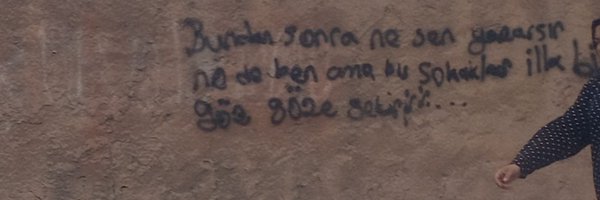 Bundan sonra ne sen yazarsın
ne de ben ama bu sokaklar illa bi
göz göze getirir...